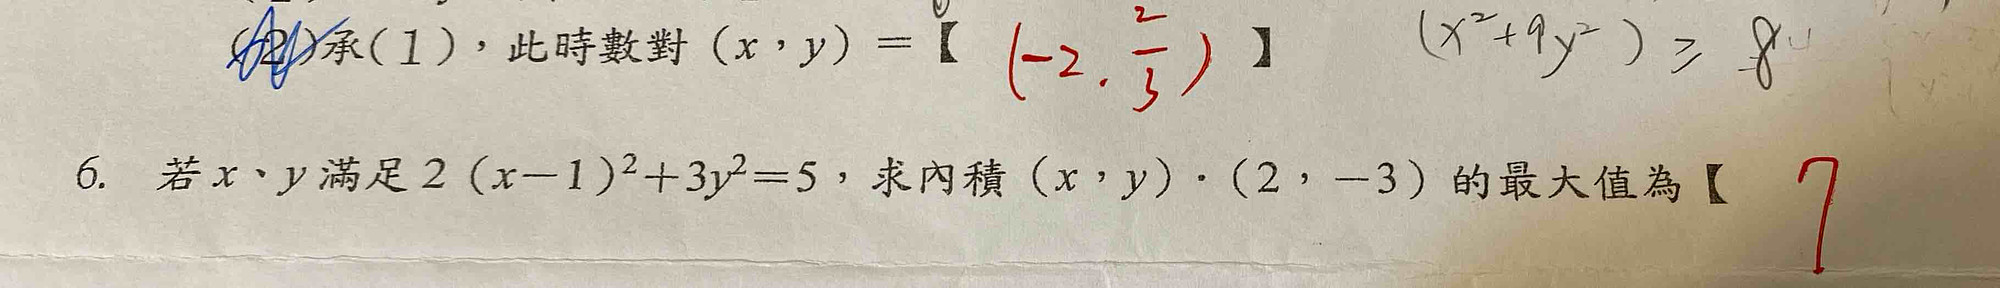 (2)承(1)，此時數對（x，y）＝【 (-2, 2/3) 】 (x²+9y²) ≥ 8
6. 若x、y滿足2（x－1）²＋3y²＝5，求內積（x，y）·（2，－3）的最大值為【 7